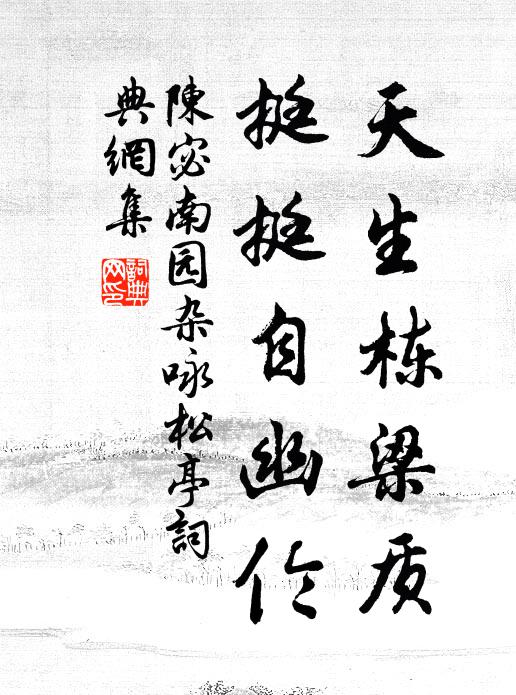 天生栋梁质
挺挺自幽伶
陳宓南园杂咏松亭詞
典網集
詞典
网印